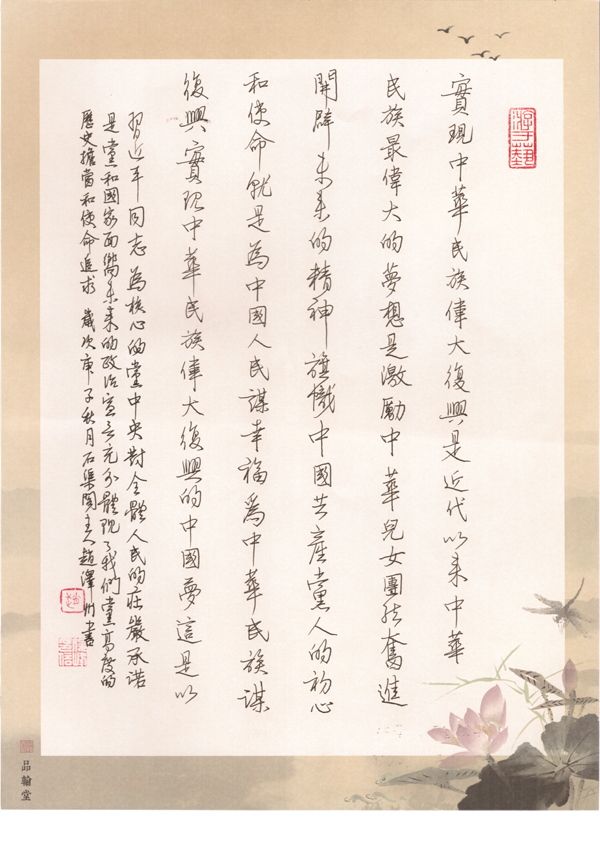 游于藝
實現中華民族偉大復興是近代以来中華
民族最偉大的夢想是激勵中華兒女團结奮進
開辟未来的精神旗幟中國共産黨人的初心
和使命就是為中國人民謀幸福為中華民族謀
復興實現中華民族偉大復興的中國夢這是以
習近平同志為核心的黨中央對全體人民的莊嚴承诺
是黨和國家面嚮未来的政治宣言充分體現了我們黨高度的
歷史擔當和使命追求 歲次庚子秋月石渠閣主人趙澤州書
品翰堂